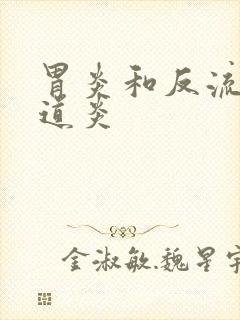 胃炎和反流
道炎
金淑敏.魏星宇